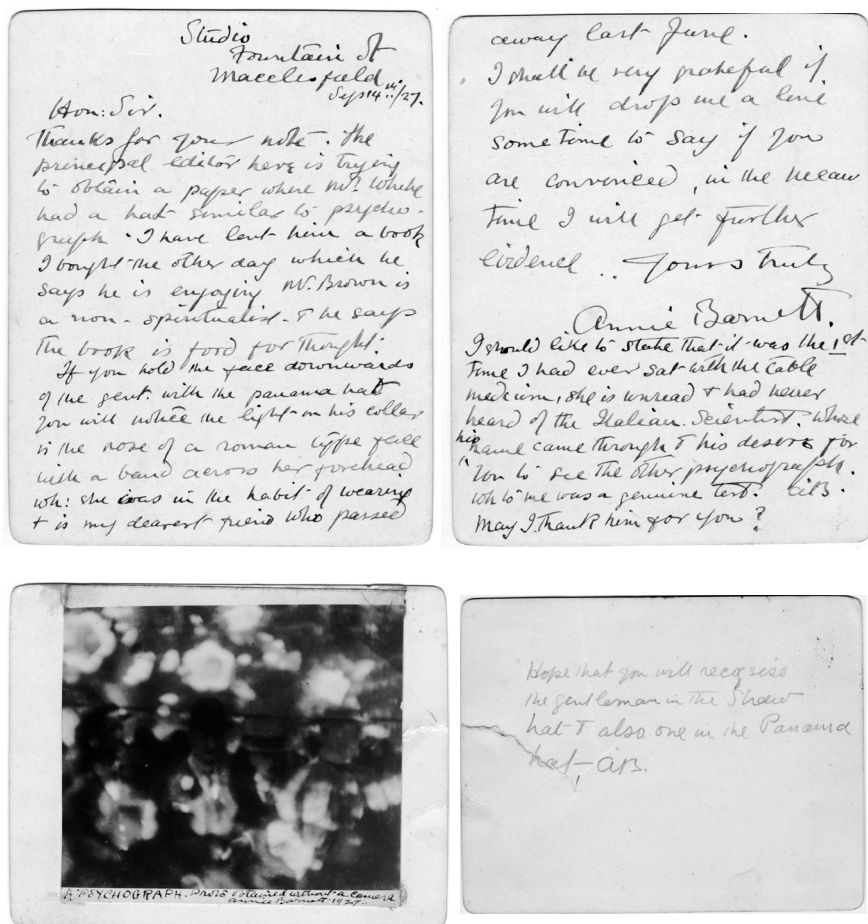 Studio
Fountain St
Macclesfield
Sep 14th/27.
Hon: Sir.
Thanks for your note. The
principal editor here is trying
to obtain a paper where Mr. White
had a hat similar to psycho-
graph. I have lent him a book
I bought the other day which he
says he is enjoying Mr. Brown is
a non-spiritualist & he says
the book is food for thought.
If you hold the face downwards
of the gent. with the panama hat
you will notice the light on his collar
is the nose of a roman type face
with a band across her forehead
wh: she was in the habit of wearing
& is my dearest friend who passed
away last June.
I shall be very grateful if
you will drop me a line
sometime to say if you
are convinced, in the mean
time I will get further
evidence.. Yours truly
Annie Barnett.
I should like to state that it was the 1st
time I had ever sat with the table
medium, she is unread & had never
heard of the Italian Scientist. whose
name came through & his desire for
you to see the other psychograph.
wh to me was a genuine test. A.B.
May I thank him for you?
A PSYCHOGRAPH. Photo obtained without a camera
Annie Barnett 1927.
Hope that you will recognise
the gentleman in the Straw
hat & also one in the Panama
hat, A.B.